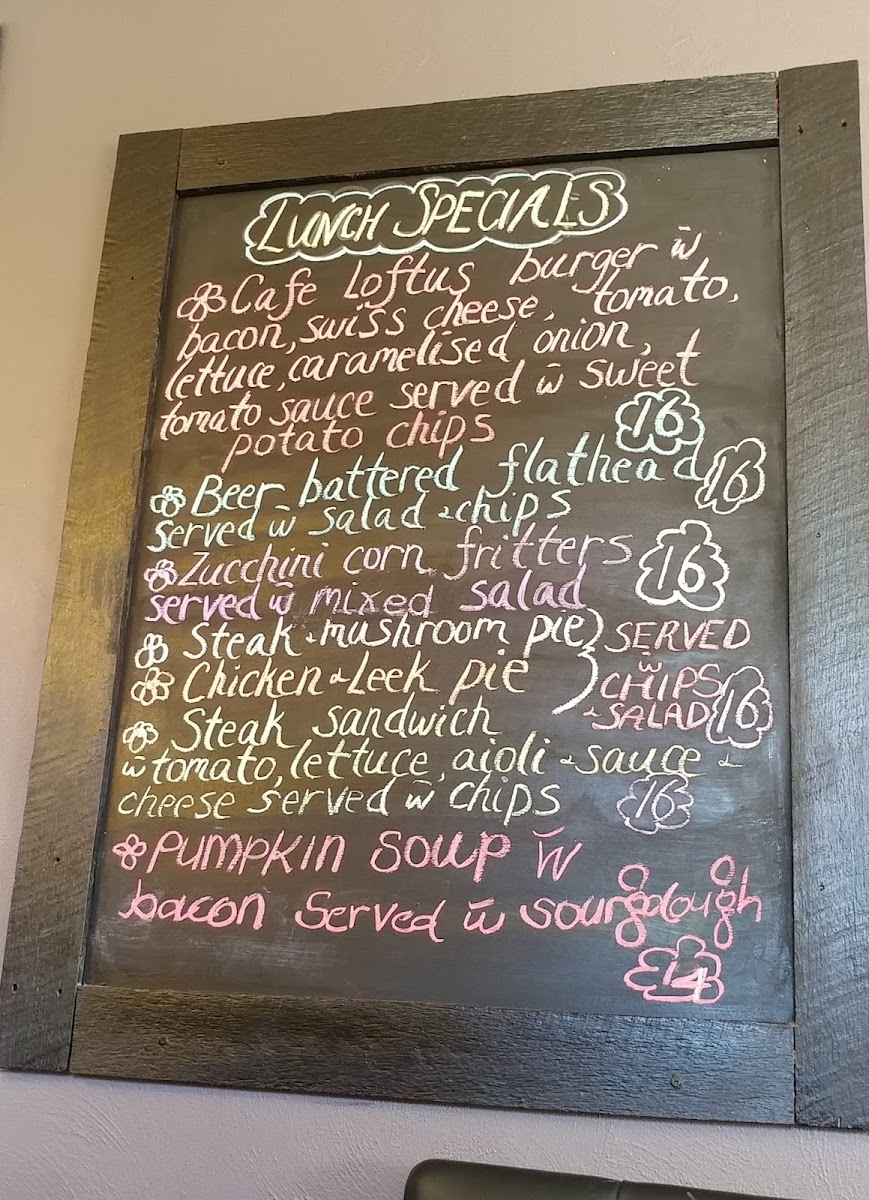 LUNCH SPECIALS
Cafe Loftus burger w̄
bacon, swiss cheese, tomato,
lettuce, caramelised onion,
tomato sauce served w̄ sweet
potato chips 16
Beer battered flathead 16
served w̄ salad & chips
Zucchini corn fritters 16
served w̄ mixed salad
Steak & mushroom pie } SERVED
Chicken & Leek pie } w̄ CHIPS
& SALAD 16
Steak sandwich
w̄ tomato, lettuce, aioli & sauce &
cheese served w̄ chips 16
PUMPKIN SOUP w̄
bacon served w̄ sourgdough
14